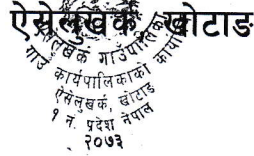 ऐसेलुखर्क, खोटाङ
ऐसेलुखर्क गाउँपालिका
गाउँ कार्यपालिकाको कार्यालय
ऐसेलुखर्क, खोटाङ
१ नं. प्रदेश नेपाल
२०७३